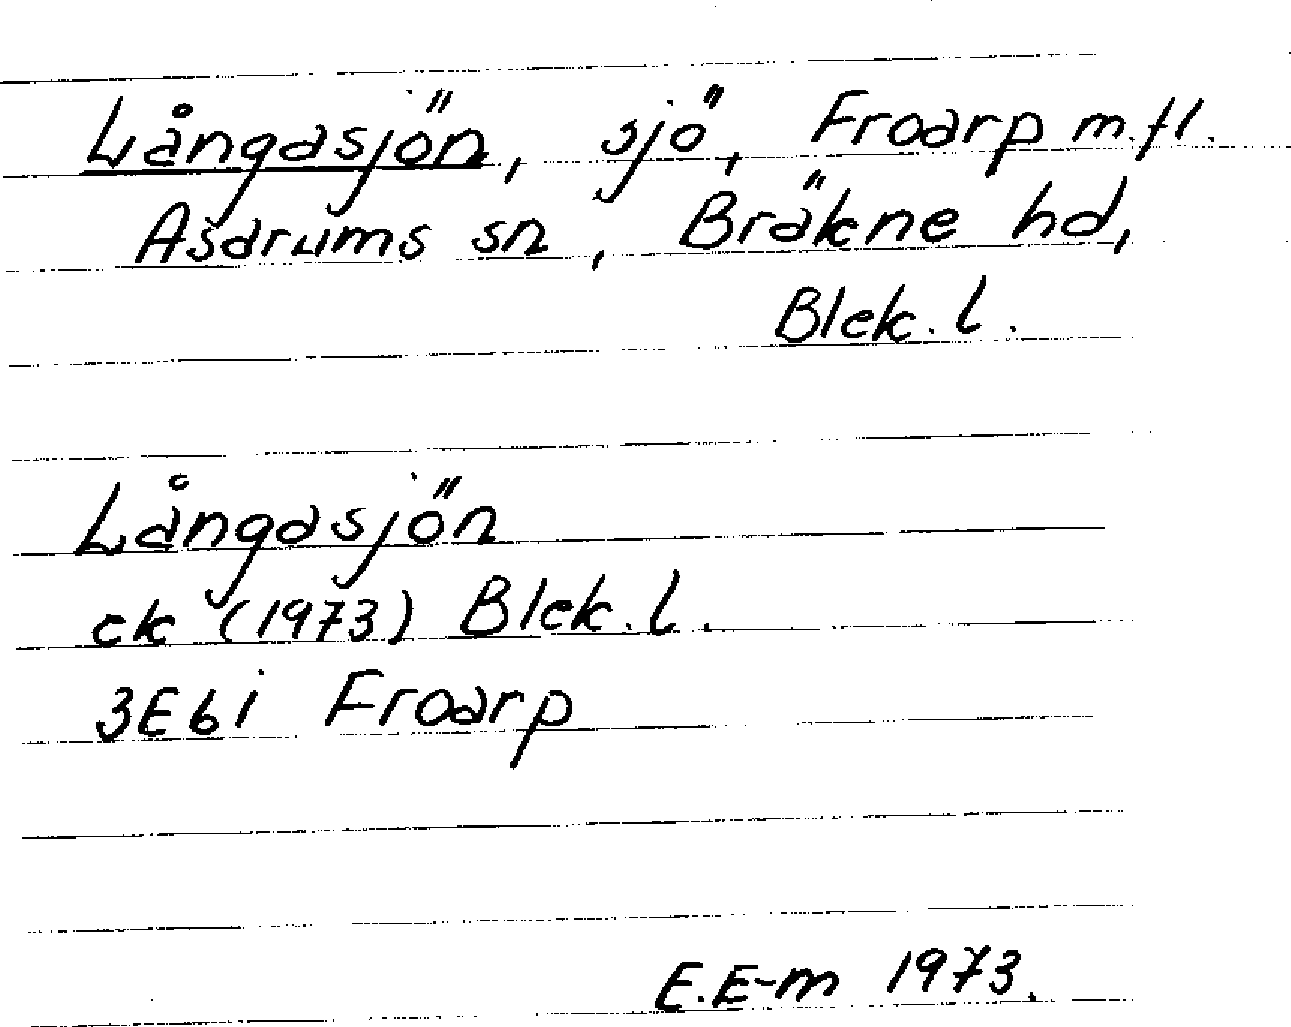 Långasjön, sjö, Froarp m.fl.
Asarums sn, Bräkne hd,
Blek. l.
Långasjön
ek (1973) Blek. l.
3E6i Froarp
E.E-m 1973.